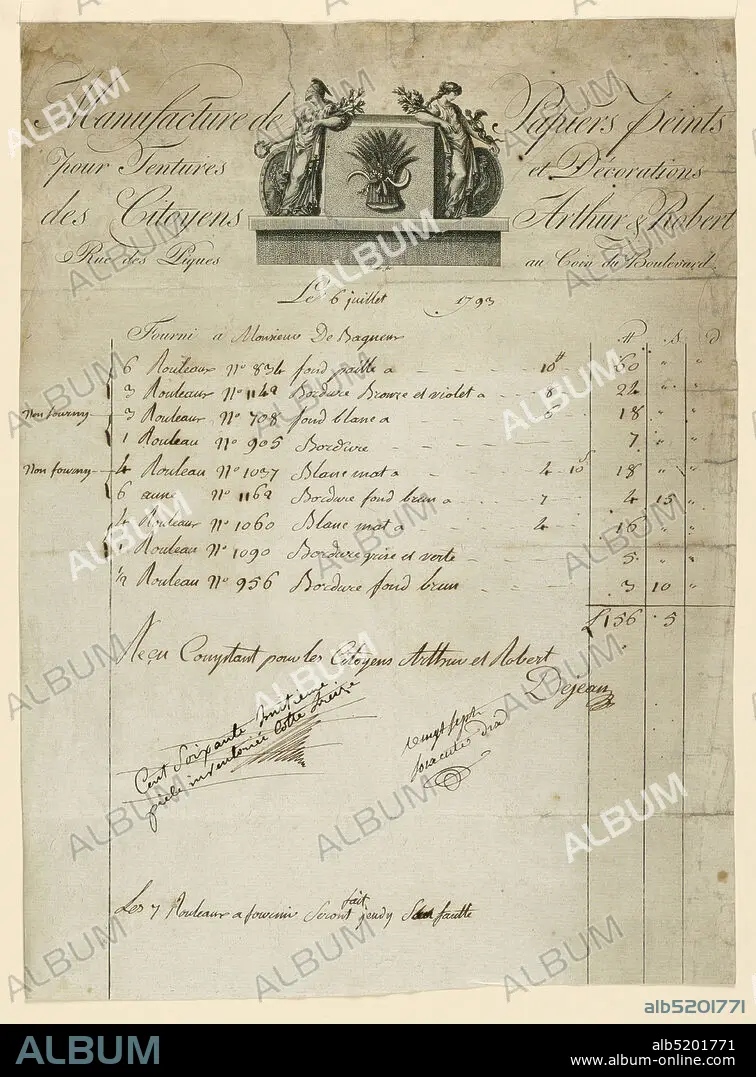 Manufacture de Papiers Peints
pour Tentures et Décorations
des Citoyens Arthur & Robert
Rue des Piques au Coin du Boulevard.
Le 6 juillet 1793
Fourni a Monsieur De Bagneux
₶ S d
6 Rouleaux No 834 fond paille a 10₶ 60 " "
3 Rouleaux No 1142 Bordure Bronze et violet a 8 24 " "
Non fourny 3 Rouleaux No 708 fond blanc a 6 18 " "
1 Rouleau No 905 Bordure 7 " "
Non fourny 4 Rouleau No 1037 Blanc mat a 4 10s 18 " "
6 aune No 1162 Bordure fond brun a 7 4 15 "
4 Rouleaux No 1060 Blanc mat a 4 16 " "
1 Rouleau No 1090 Bordure grise et verte 5 " "
1/2 Rouleau No 956 Bordure fond brun 3 10 "
£156 5
Reçu Comptant pour les Citoyens Arthur et Robert
Dejean
Cent Soixante huitieme
piece inventoriée Cotte treize
vingt sept
Les 7 Rouleaux a fournir Seront fait jeudy faulte
ALBUM
alb5201771
ALBUM
alb5201771
www.album-online.com